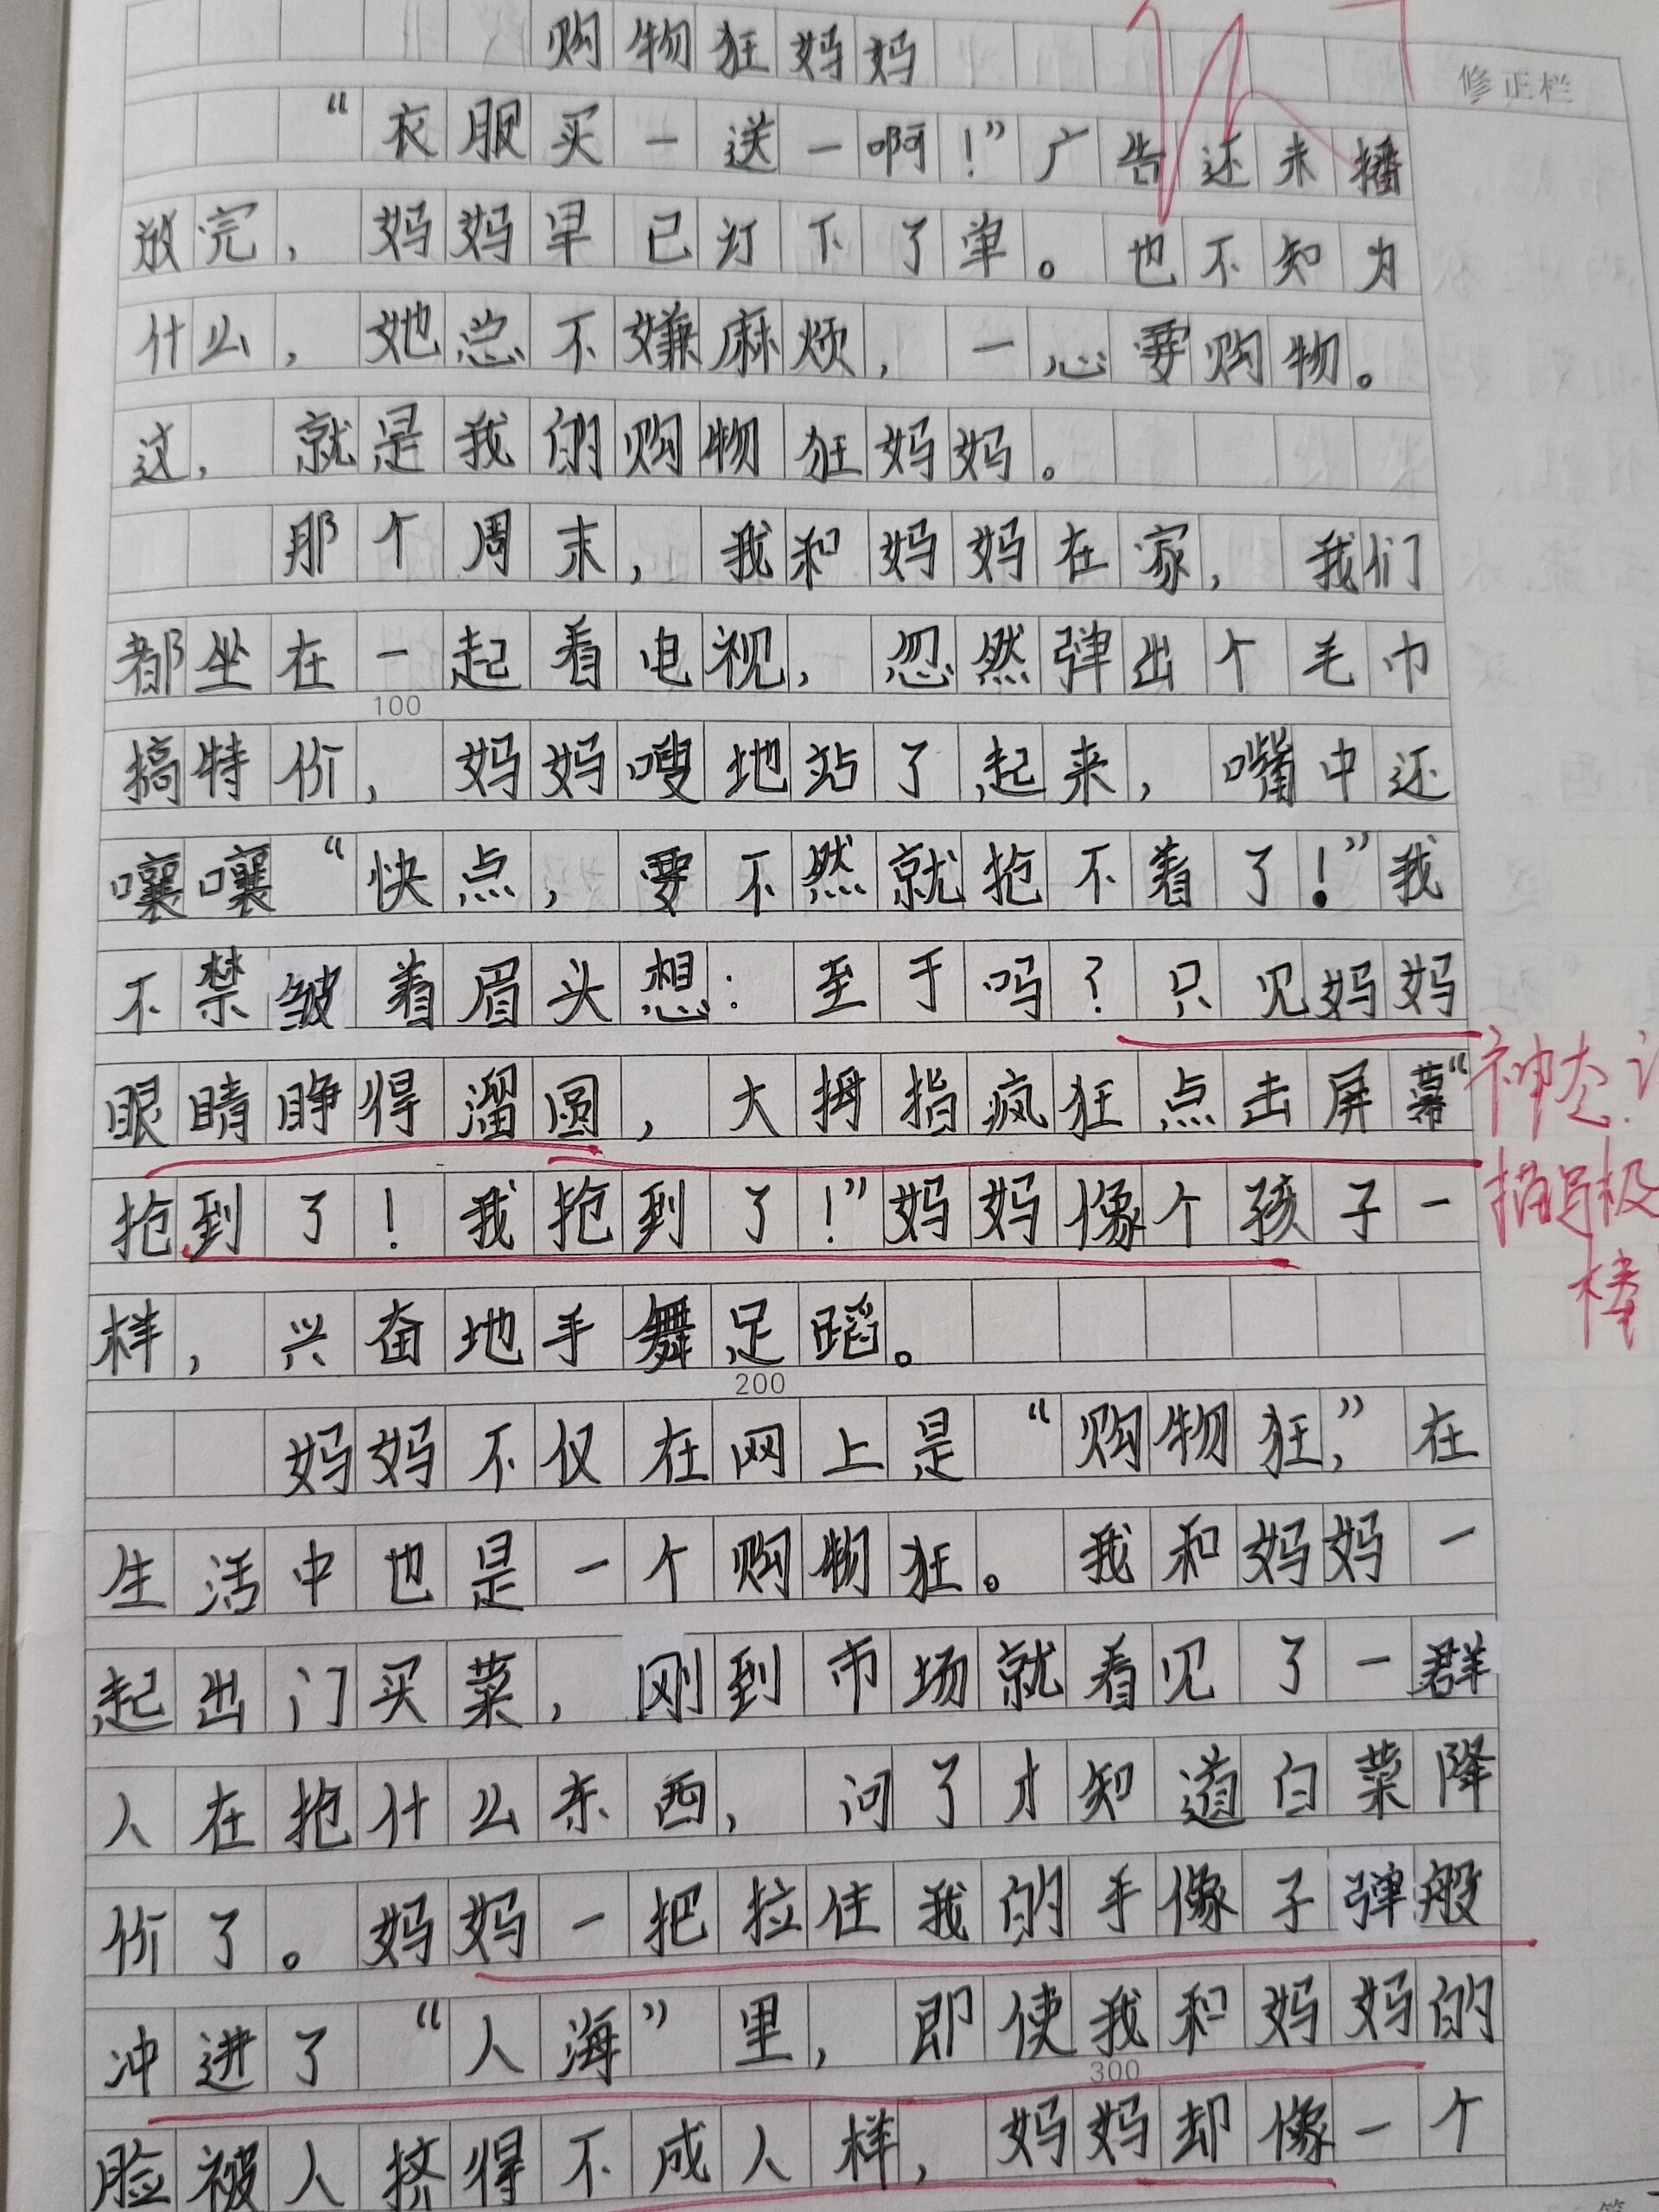 购物狂妈妈
修正栏
“衣服买一送一啊！”广告还未播
放完，妈妈早已灯下了单。也不知为
什么，她总不嫌麻烦，一心要购物。
过，就是我的购物狂妈妈。
那个周末，我和妈妈在家，我们
都坐在一起看电视，忽然弹出个毛巾
100
搞特价，妈妈嗖地站了起来，嘴中还
嚷嚷“快点，要不然就抢不着了！”我
不禁皱着眉头想：至于吗？只见妈妈
眼睛睁得溜圆，大拇指疯狂点击屏幕“
抢到了！我抢到了！”妈妈像个孩子一
样，兴奋地手舞足蹈。
神态
描写极
棒
200
妈妈不仅在网上是“购物狂，”在
生活中也是一个购物狂。我和妈妈一
起出门买菜，刚到市场就看见了一群
人在抢什么东西，问了才知道白菜降
价了。妈妈一把拉住我的手像子弹般
冲进了“人海”里，即使我和妈妈的
300
脸被人挤得不成人样，妈妈却像一个